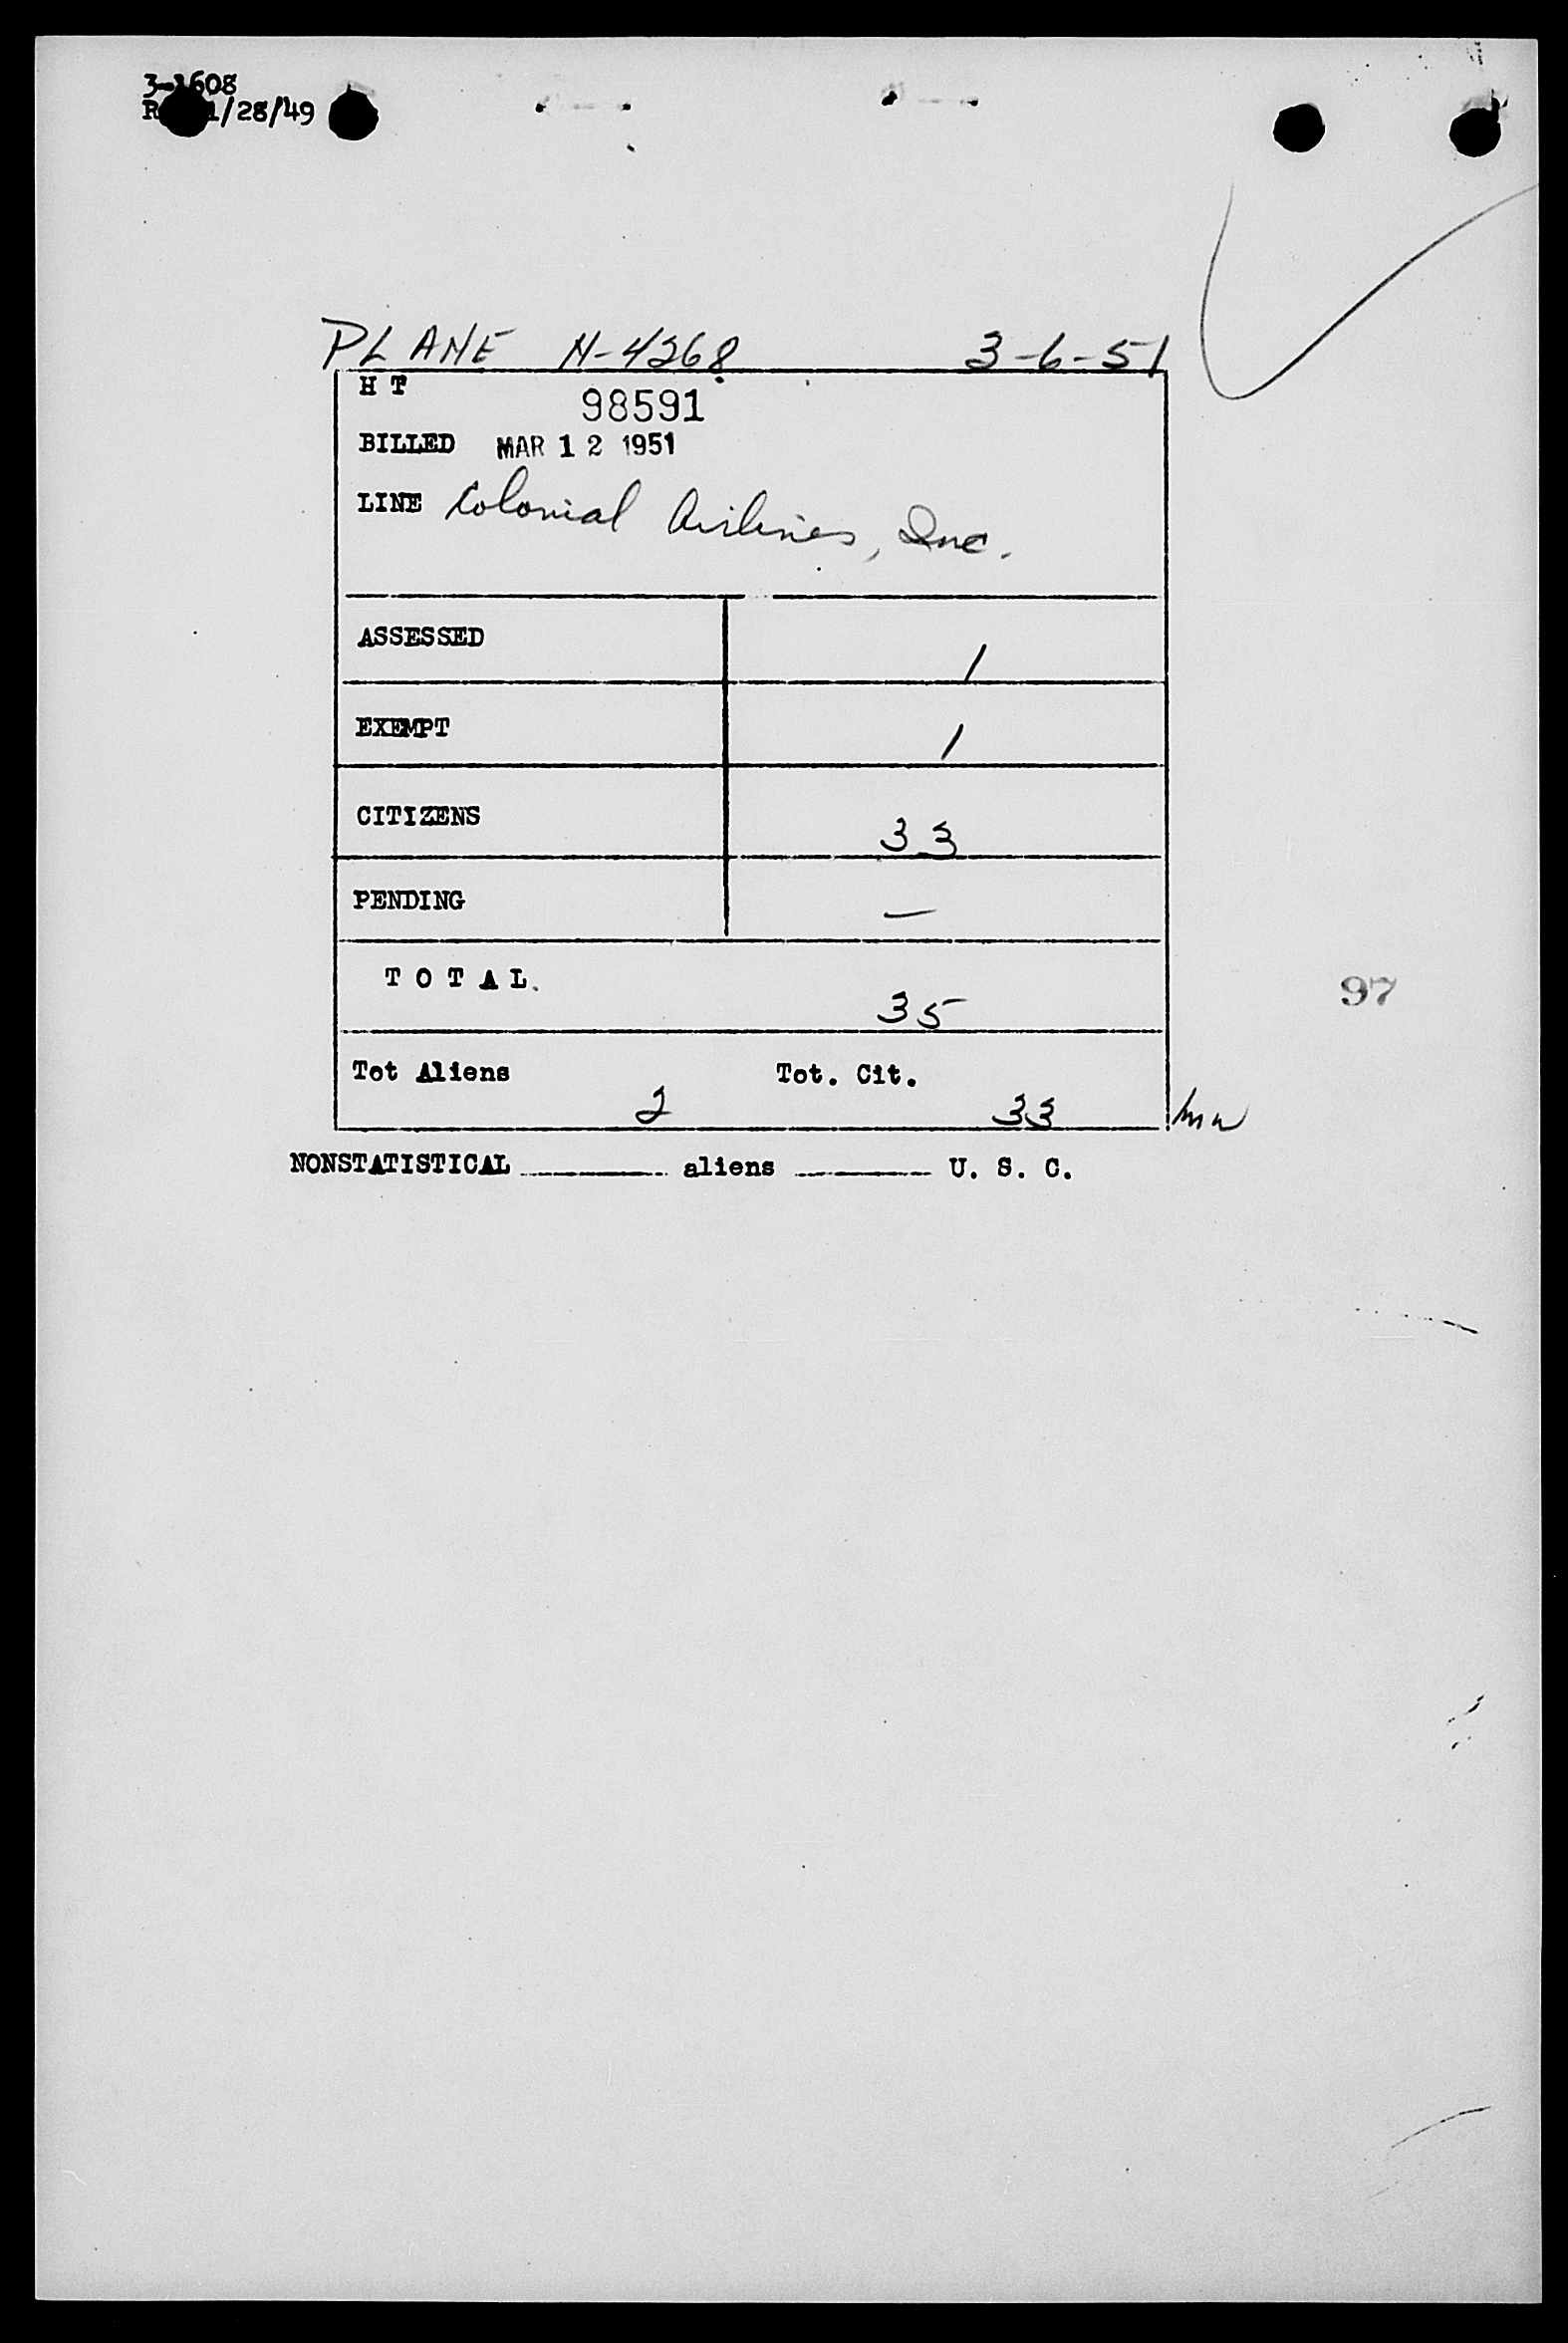 3-1608
1/28/49
PLANE N-4268 3-6-51
H T
98591
BILLED MAR 12 1951
LINE Colonial Airlines, Inc.
ASSESSED 1
EXEMPT 1
CITIZENS 33
PENDING —
TOTAL. 35
97
Tot Aliens Tot. Cit.
2 33
NONSTATISTICAL ______ aliens ______ U. S. C.